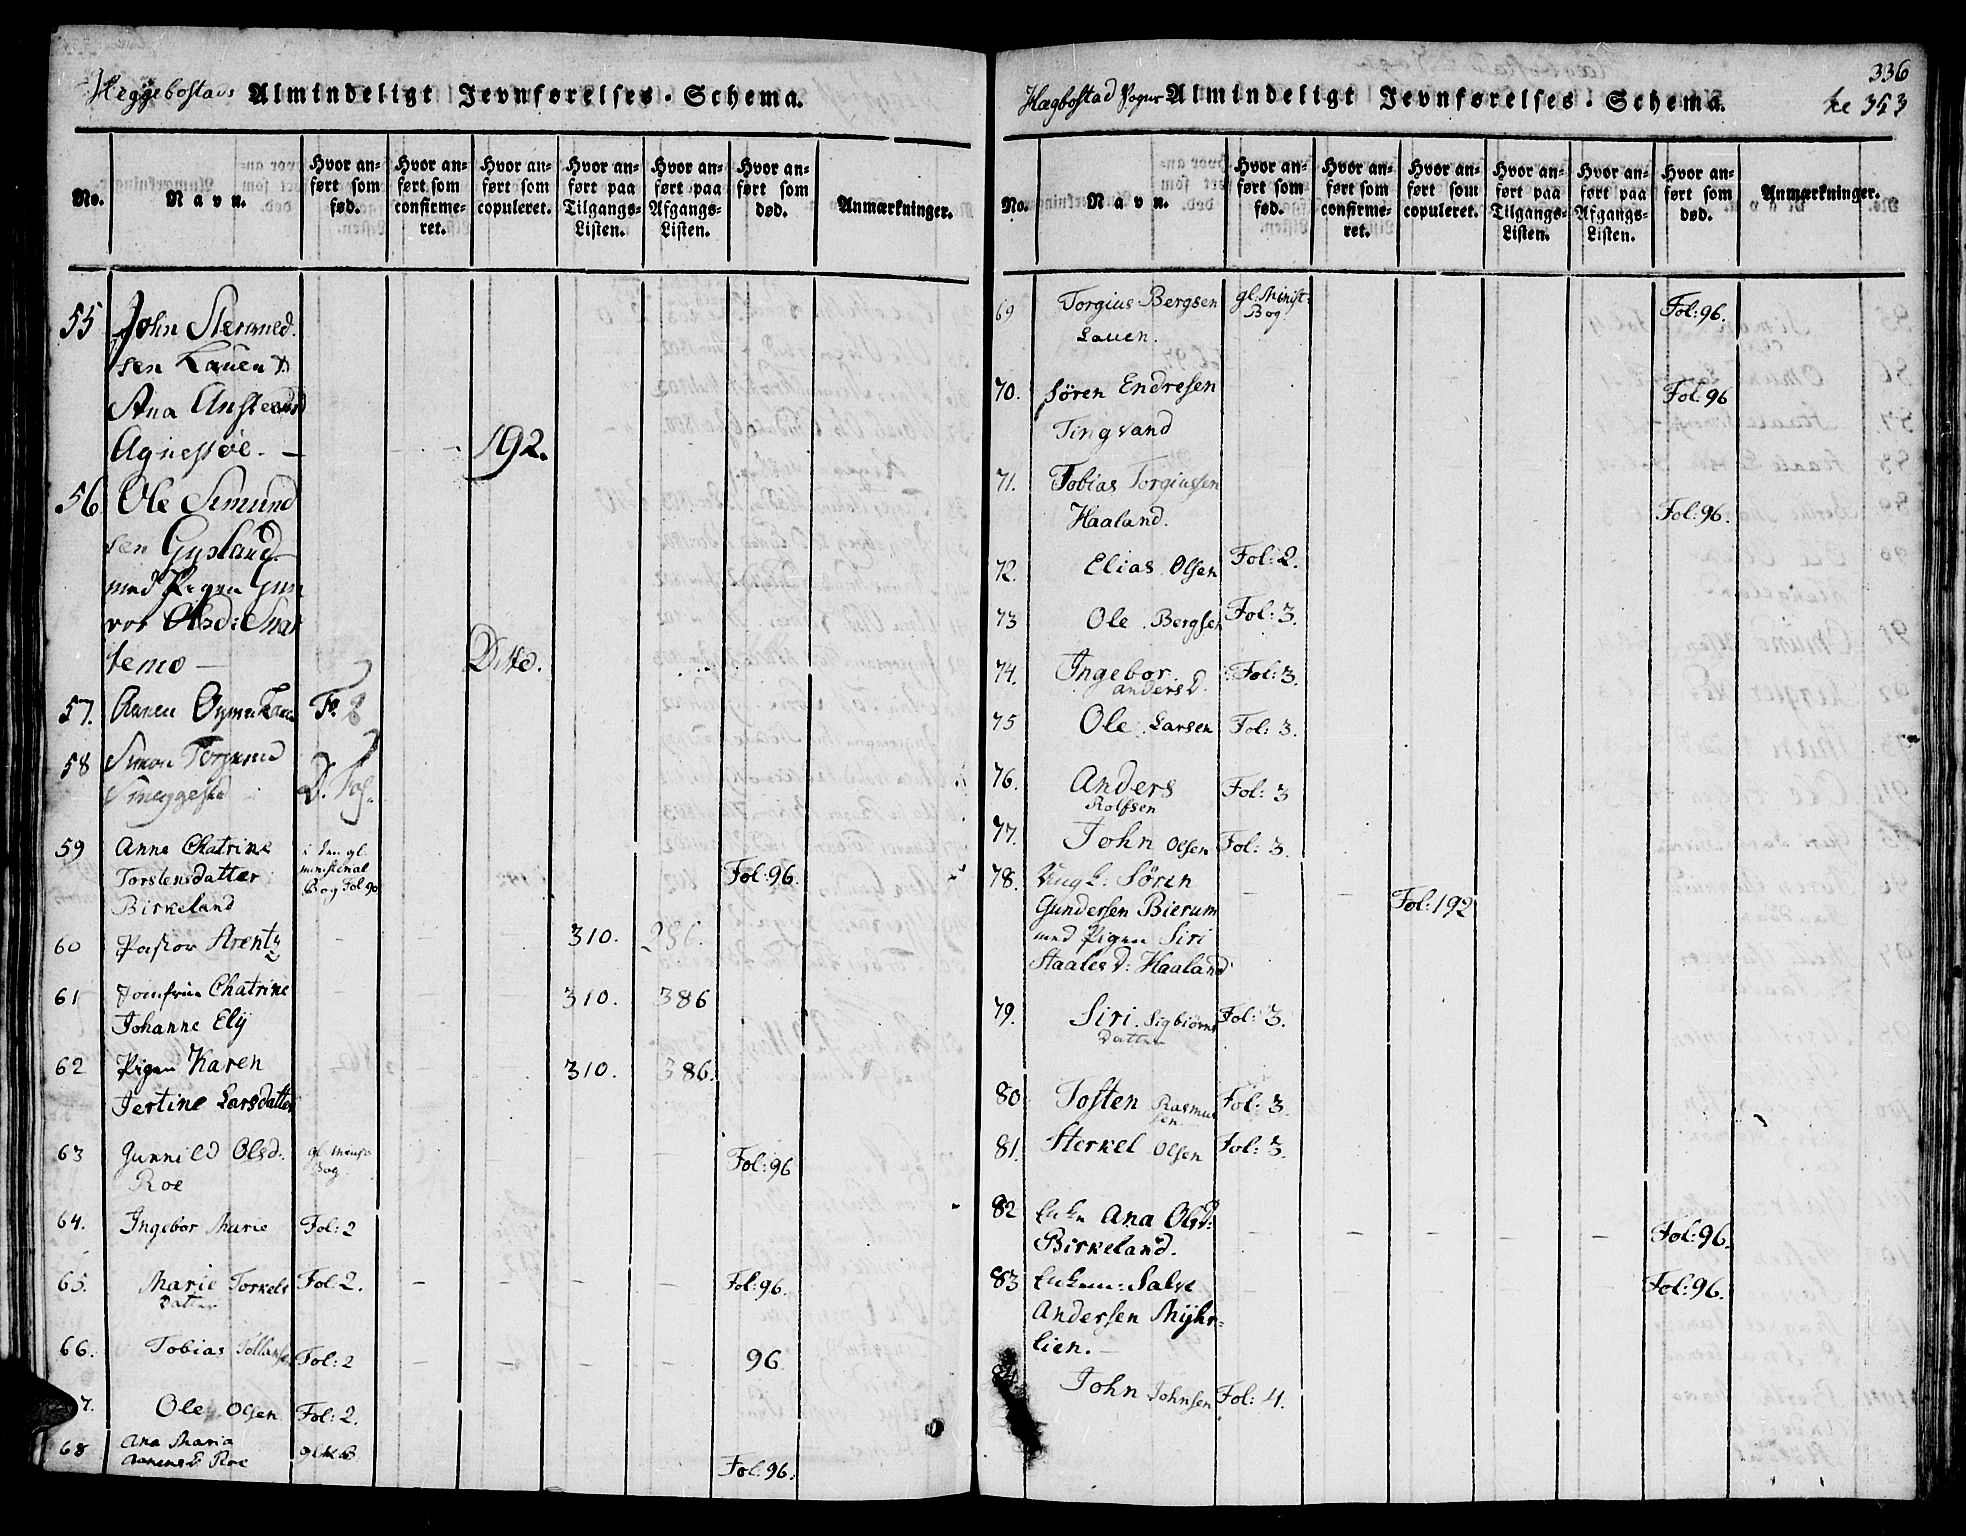 Heggebostads Almindeligt Jevnførelses-Schema.
No. Navn. Hvor anført som fød. Hvor anført som confirmeret. Hvor anført som copuleret. Hvor anført paa Tilgangs-Listen. Hvor anført paa Afgangs-Listen. Hvor anført som død. Anmærkninger.
55 John
sen Lauen &
Ana
192.
56 Ole Simund
sen Gysland
med Pigen Gun
vor
temo — Ditto.
57. Fo. 2
58 Simon
59 Anne Chatrine i den gl.
Torstensdatter ministerial Fol: 96.
Birkeland Bog Fol 90
60 Pastor Arentz 310.
61 Jomfrue Chatrine 310. 386
Johanne Ely
62 Pigen Karen 310. 386.
Jertine Larsdatter
63 Gunnild Olsd: Fol: 96
Roe Bog
64. Ingebor Marie Fol: 2
65. Marie Torkels Fol: 2. Fol: 96.
Datter
66. Tobias Fol: 2 96.
7. Ole Olsen Fol: 2.
68 Ana Maria
Roe Fol: 96.
336
Hægbostad Almindeligt Jevnførelses-Schema. 353
No. Navn. Hvor anført som fød. Hvor anført som confirmeret. Hvor anført som copuleret. Hvor anført paa Tilgangs-Listen. Hvor anført paa Afgangs-Listen. Hvor anført som død. Anmærkninger.
69 Torgius Bergsen gl. Minist: Fol: 96.
Lauen. Bog.
70. Søren Endresen Fol: 96
Tingvand
71. Tobias Torgiussen
Haaland. Fol: 96.
72. Elias Olsen Fol: 2.
73 Ole Bergsen Fol: 3.
74. Ingebor Fol: 3.
andersd.
75 Ole Larsen Fol: 3.
76. Anders Fol: 3
Rolfsen
77. John Olsen Fol: 3.
78. Ungk: Søren
Gundersen Bierum Fol: 192
med Pigen Siri
Staalesd: Haaland
79. Siri Sigbiørns Fol: 3.
Datter
80 Tosten Rasmus Fol: 3.
sen
81. Sterkel Olsen Fol: 3.
82 Enke Ana Olsd:
Birkeland. Fol: 96.
83 Enkem: Salve Fol: 96.
Andersen Myhr-
lien.
84. John Johnsen Fol: 4.